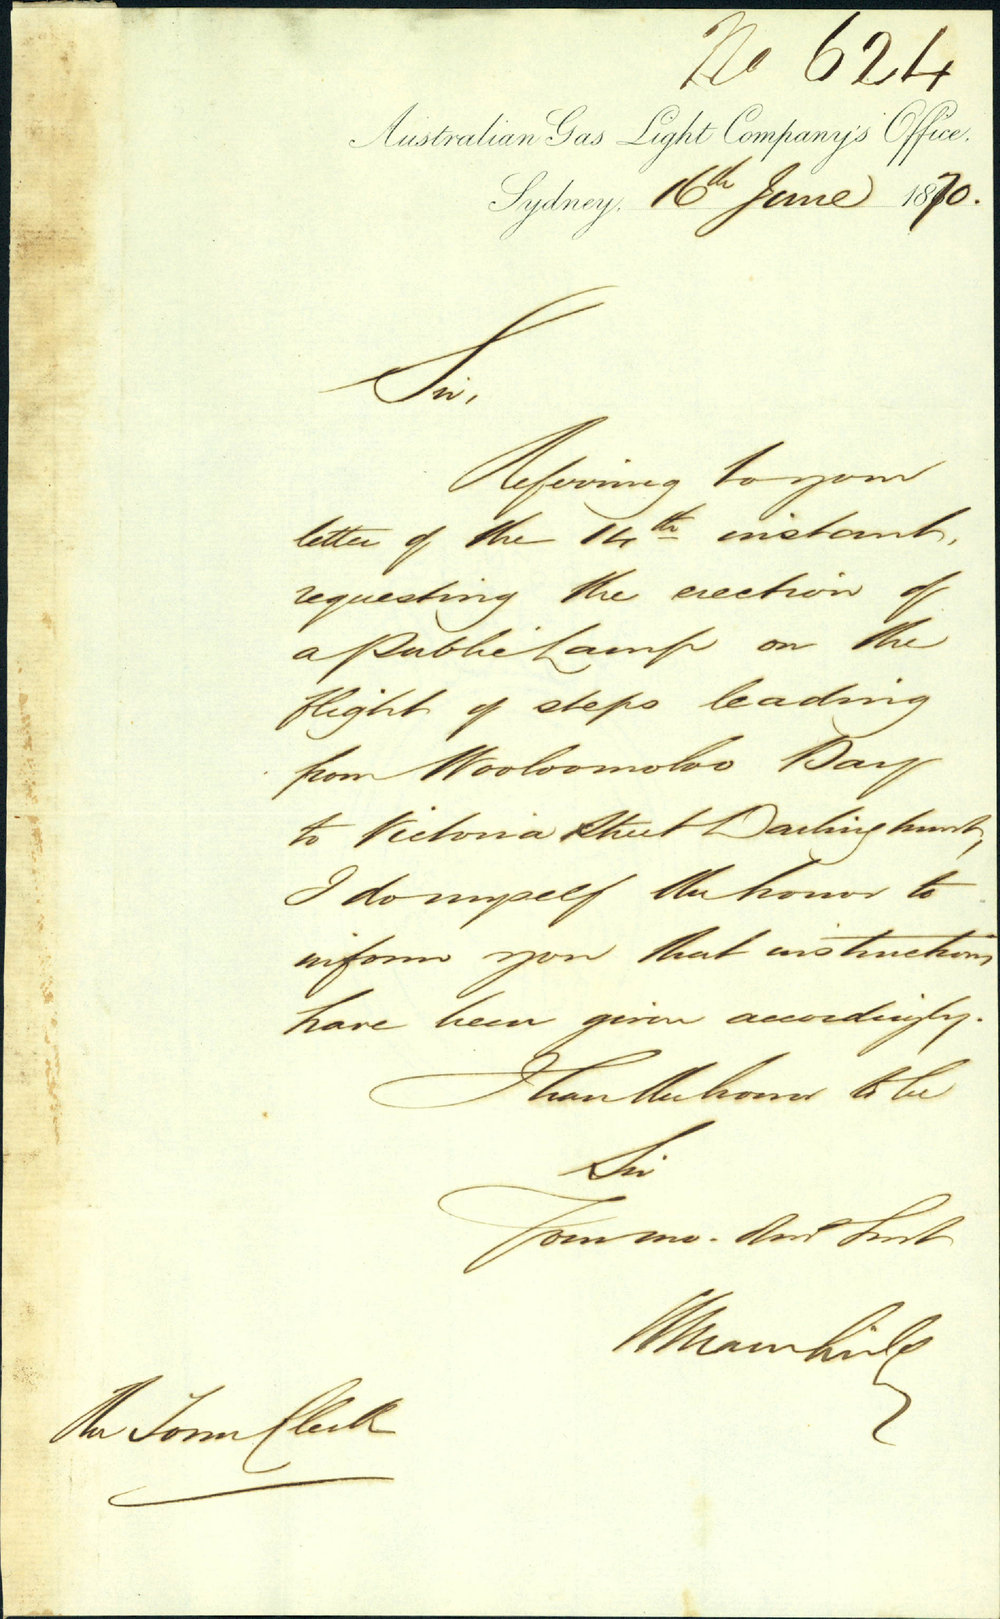 No 624
Australian Gas Light Company's Office.
Sydney, 16th June 1870.
Sir,
Referring to your
letter of the 14th instant,
requesting the erection of
a Public Lamp on the
flight of steps leading
from Wooloomoloo Bay
to Victoria Street Darlinghurst,
I do myself the honor to
inform you that instructions
have been given accordingly.
I have the honor to be
Sir
Your mo. Obt Servt
The Town Clerk